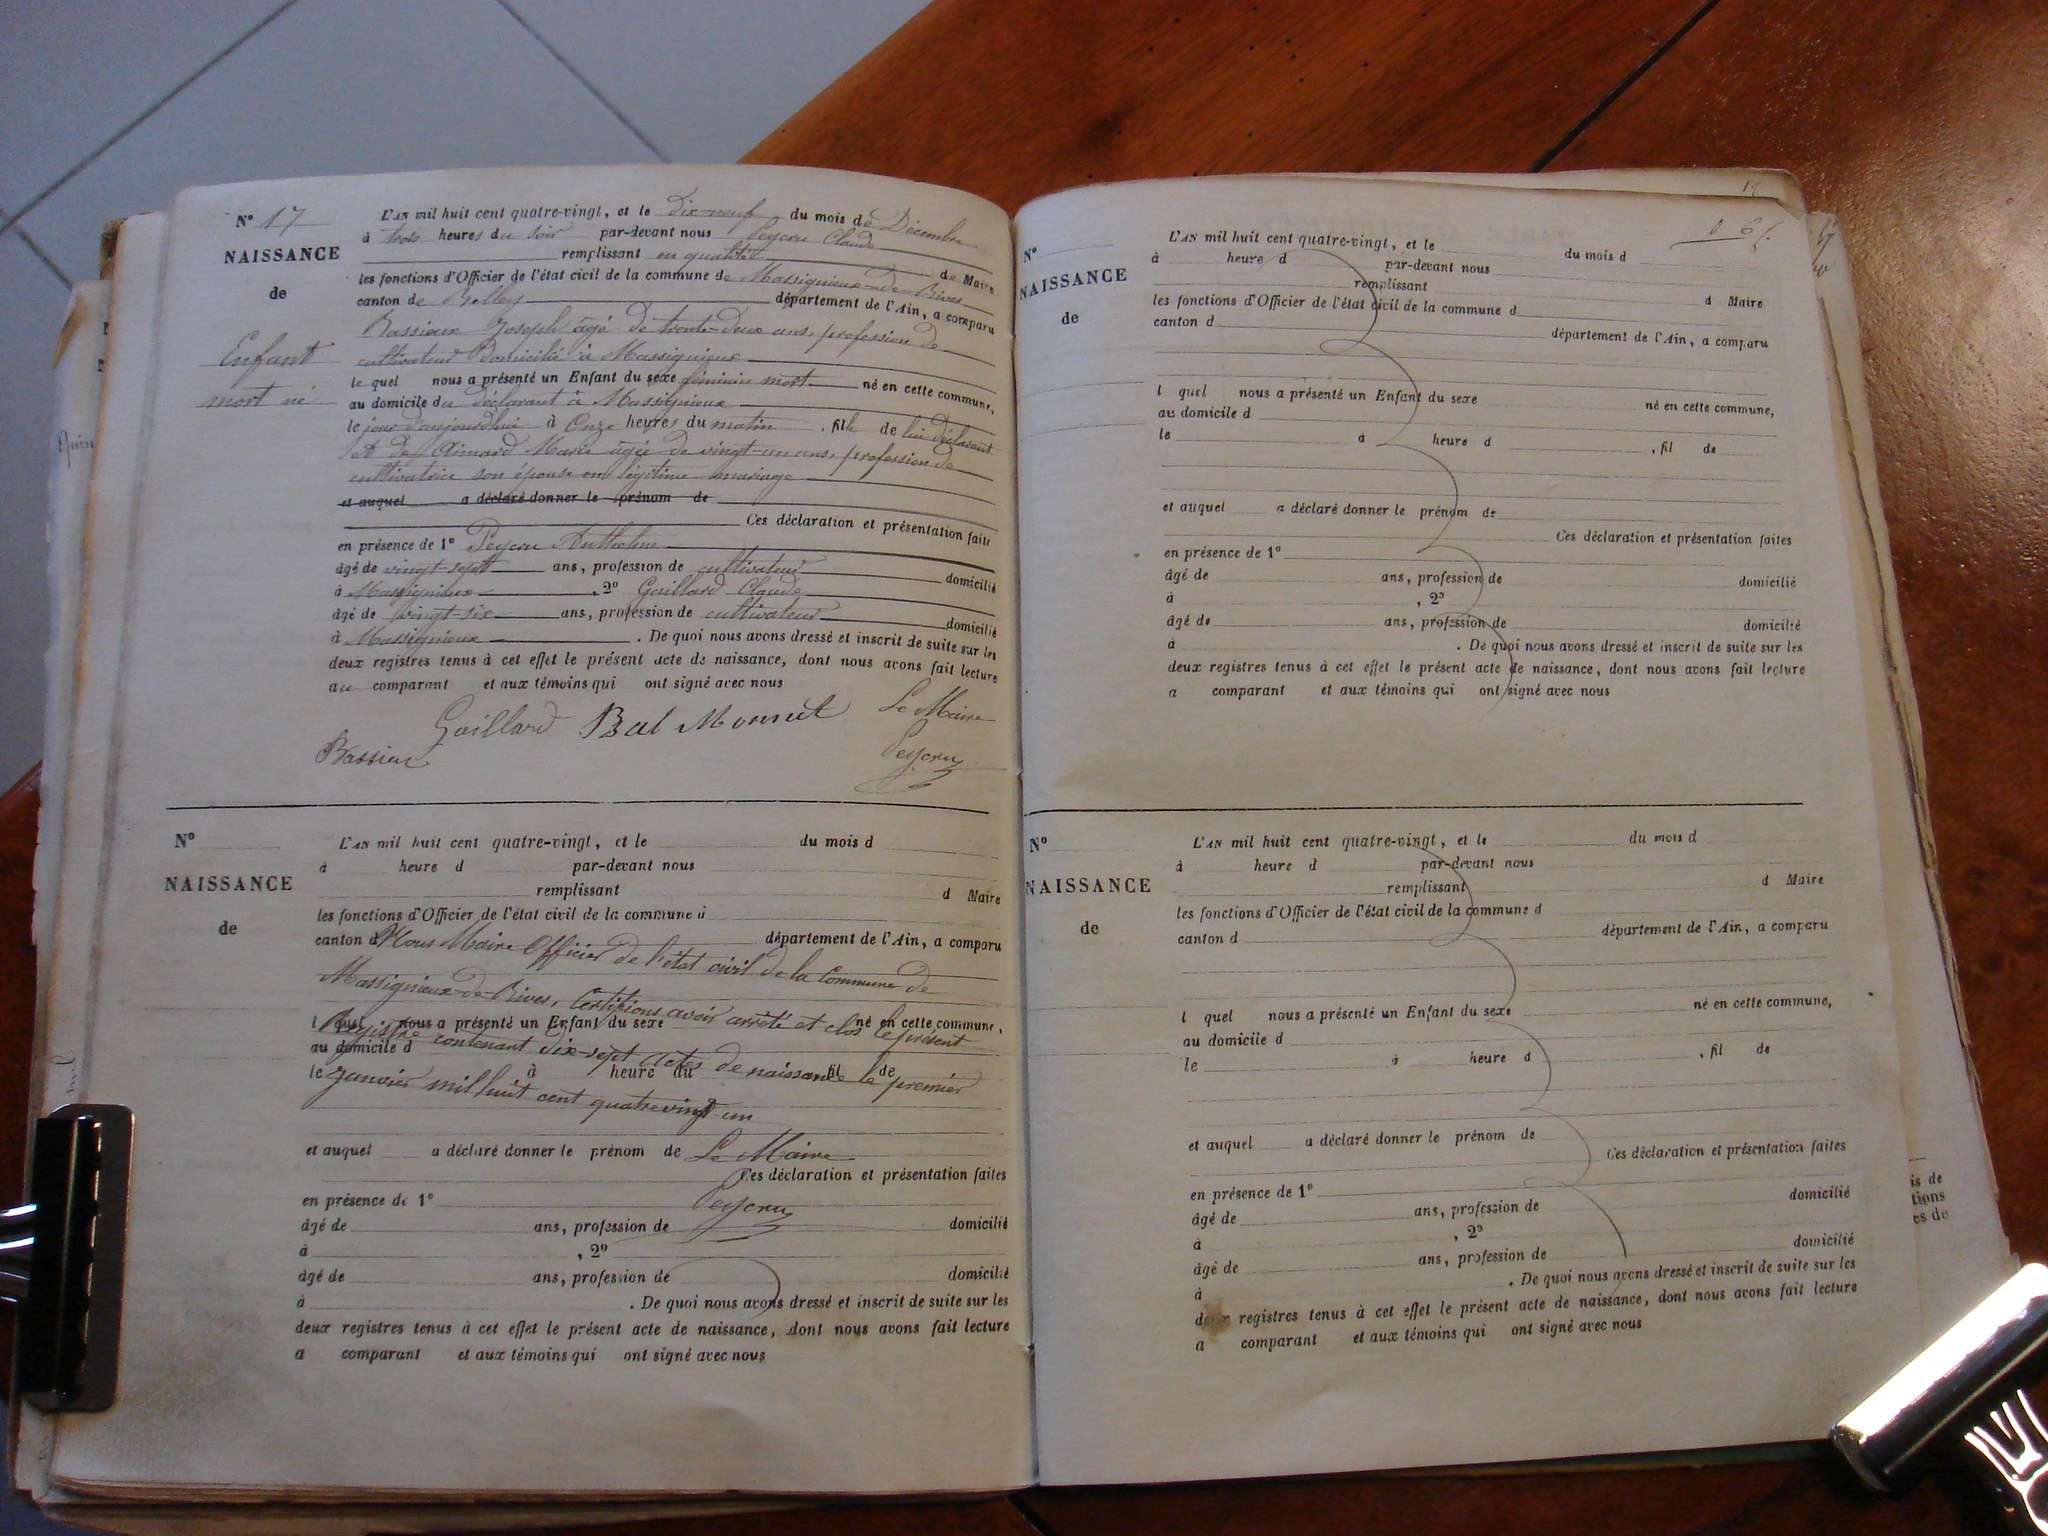 N° 17
NAISSANCE
de
Enfant
mort né
L'AN mil huit cent quatre-vingt, et le dix-neuf du mois de Décembre
à trois heures du soir par-devant nous Peycru Claude
remplissant en qualité de Maire
les fonctions d'Officier de l'état civil de la commune de Massignieux-de-Rives
canton de Belley département de l'Ain, a comparu
Bassieux Joseph âgé de trente-deux ans, profession de
cultivateur Domicilié à Massignieux
le quel nous a présenté un Enfant du sexe féminin mort né en cette commune,
au domicile du déclarant à Massignieux
le jour d'aujourdhui à Onze heures du matin, fille de lui déclarant
Et de Aimard Marie âgée de vingt-un ans, profession de
cultivatrice son épouse en légitime mariage
et auquel a déclaré donner le prénom de
Ces déclaration et présentation faite
en présence de 1° Peycru Anthelme
âgé de vingt-sept ans, profession de cultivateur domicilié
à Massignieux, 2° Gaillard Claude
âgé de vingt-six ans, profession de cultivateur domicilié
à Massignieux. De quoi nous avons dressé et inscrit de suite sur les
deux registres tenus à cet effet le présent acte de naissance, dont nous avons fait lecture
au comparant et aux témoins qui ont signé avec nous
Gaillard Bal Monnet Le Maire
Bassieu Peycru
N°
NAISSANCE
de
L'AN mil huit cent quatre-vingt, et le du mois d
à heure d par-devant nous
remplissant d Maire
les fonctions d'Officier de l'état civil de la commune d
canton d département de l'Ain, a comparu
Nous Maire Officier de l'état civil de la Commune de
Massignieux-de-Rives, Certifions avoir arrêté et clos le présent
l quel nous a présenté un Enfant du sexe né en cette commune,
Registre contenant dix-sept actes de naissance le premier
au domicile d
le à heure du fil de
Janvier mil huit cent quatre vingt-un
et auquel a déclaré donner le prénom de
Le Maire
Ces déclaration et présentation faites
en présence de 1°
Peycru
âgé de ans, profession de domicilié
à , 2°
âgé de ans, profession de domicilié
à . De quoi nous avons dressé et inscrit de suite sur les
deux registres tenus à cet effet le présent acte de naissance, dont nous avons fait lecture
a comparant et aux témoins qui ont signé avec nous
N°
NAISSANCE
de
L'AN mil huit cent quatre-vingt, et le du mois d
à heure d par-devant nous
remplissant d Maire
les fonctions d'Officier de l'état civil de la commune d
canton d département de l'Ain, a comparu
l quel nous a présenté un Enfant du sexe né en cette commune,
au domicile d
le à heure d , fil de
et auquel a déclaré donner le prénom de
Ces déclaration et présentation faites
en présence de 1°
âgé de ans, profession de domicilié
à , 2°
âgé de ans, profession de domicilié
à . De quoi nous avons dressé et inscrit de suite sur les
deux registres tenus à cet effet le présent acte de naissance, dont nous avons fait lecture
a comparant et aux témoins qui ont signé avec nous
N°
NAISSANCE
de
L'AN mil huit cent quatre-vingt, et le du mois d
à heure d par-devant nous
remplissant d Maire
les fonctions d'Officier de l'état civil de la commune d
canton d département de l'Ain, a comparu
l quel nous a présenté un Enfant du sexe né en cette commune,
au domicile d
le à heure d , fil de
et auquel a déclaré donner le prénom de
Ces déclaration et présentation faites
en présence de 1°
âgé de ans, profession de domicilié
à , 2°
âgé de ans, profession de domicilié
à . De quoi nous avons dressé et inscrit de suite sur les
deux registres tenus à cet effet le présent acte de naissance, dont nous avons fait lecture
a comparant et aux témoins qui ont signé avec nous